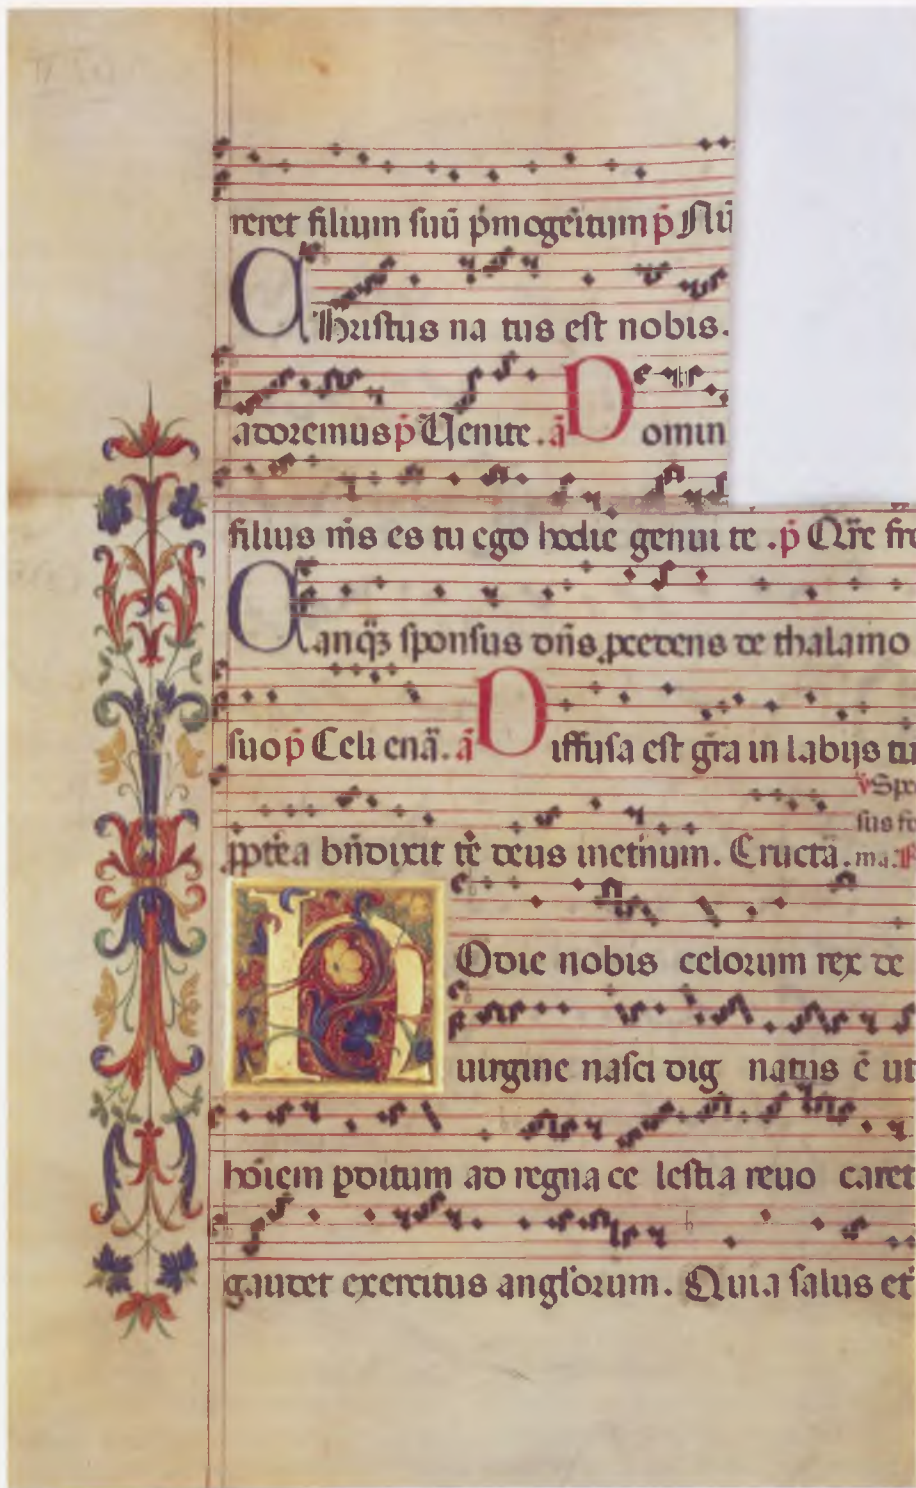 reret filium suū p̄mogēitum p̄ Nū
Christus na tus est nobis.
adoremus p̄ Venite. ā Domin
filius m̄s es tu ego hodie genui te. p̄ Q̄re fre
Tanq̄ʒ sponsus dn̄s p̲cedens de thalamo
suo p̄ Celi enā. ā Diffusa est gr̄a in labijs tu
v̄ Spe
sus fo
p̲ptēa bn̄dixit tē deus inet̄num. Eructā. ma. R
Hodie nobis celorum rex de
uirgine nasci dig natus ē ut
hōiem p̲ditum ad regna ce lestia reuo caret
gaudet exercitus angl̄orum. Quia salus et̄